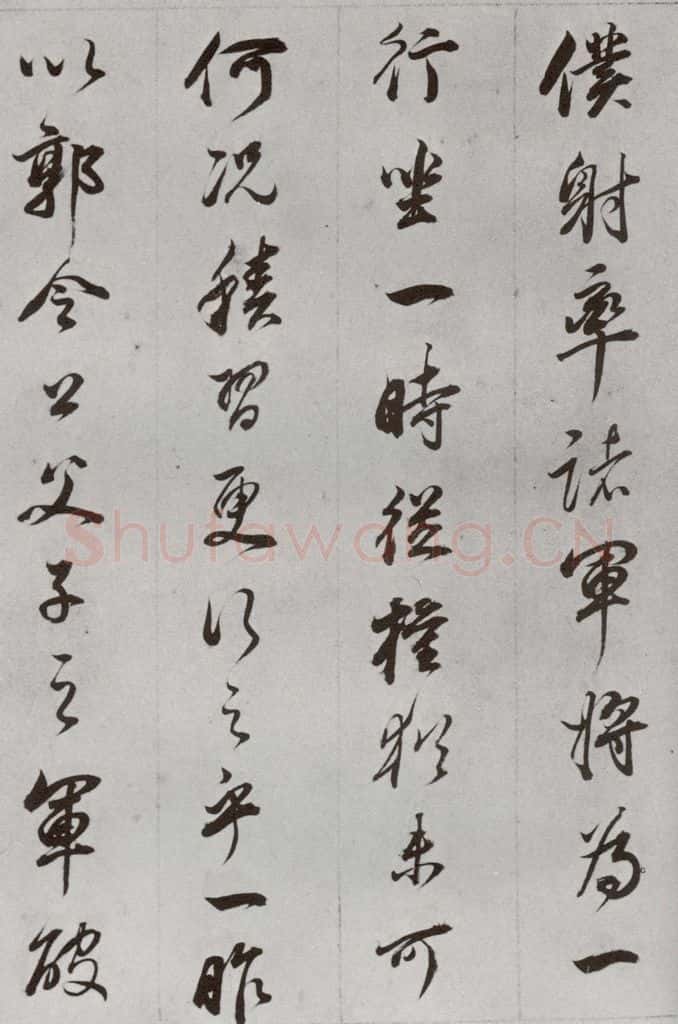 僕射率諸軍將為一
行坐一時從權猶未可
何況積習更行之乎一昨
以郭令公父子之軍破
Shufawang.CN